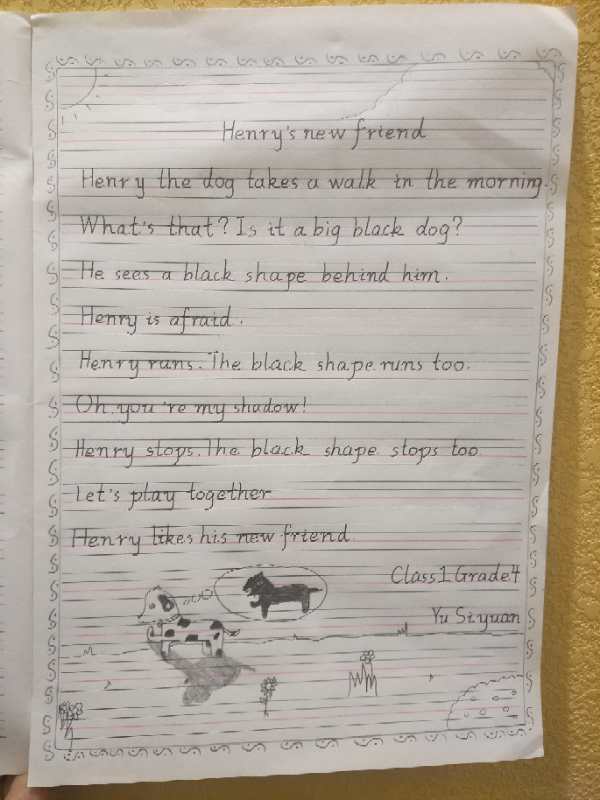 Henry's new friend
Henry the dog takes a walk in the morning.
What's that? Is it a big black dog?
He sees a black shape behind him.
Henry is afraid.
Henry runs. The black shape runs too.
Oh, you're my shadow!
Henry stops. The black shape stops too.
Let's play together
Henry likes his new friend.
Class1 Grade4
Yu Siyuan